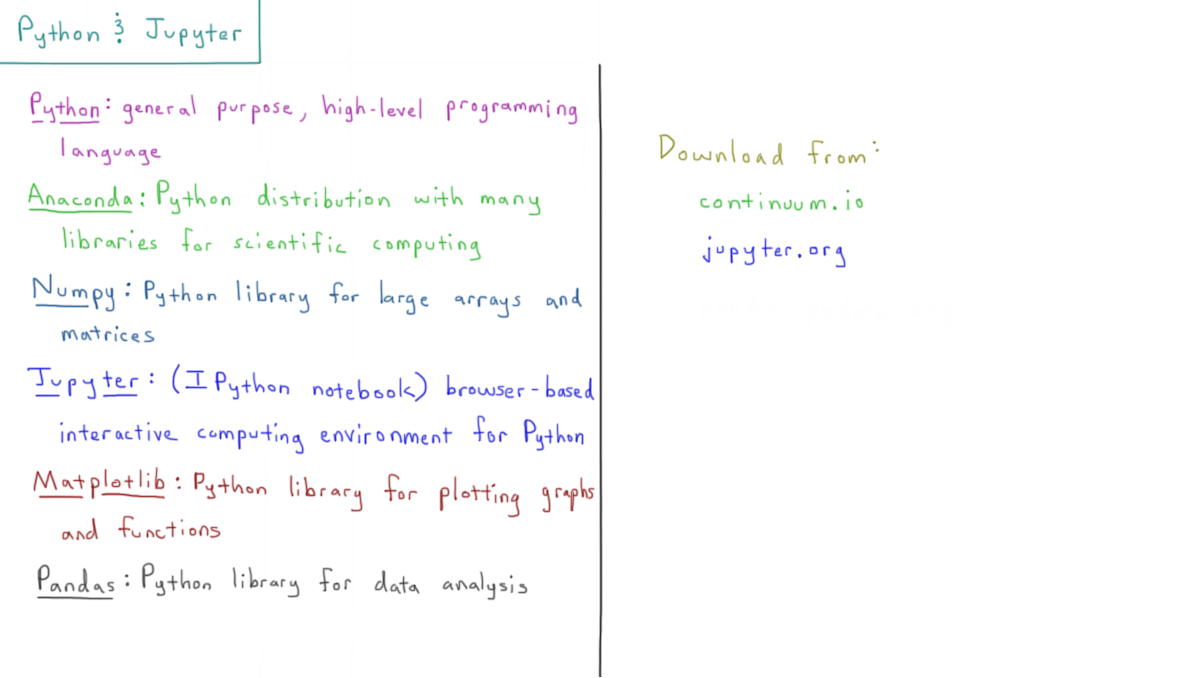 Python & Jupyter
Python: general purpose, high-level programming
language
Anaconda: Python distribution with many
libraries for scientific computing
Numpy: Python library for large arrays and
matrices
Jupyter: (I Python notebook) browser-based
interactive computing environment for Python
Matplotlib: Python library for plotting graphs
and functions
Pandas: Python library for data analysis
Download from:
continuum.io
jupyter.org